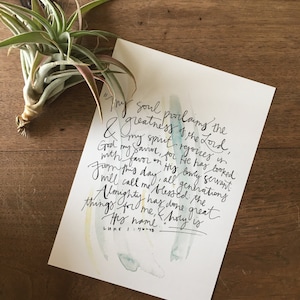 "my soul proclaims the
& greatness of the Lord
my spirit rejoices in
God my savior, for He has looked
with favor on His lowly servant.
From this day all generations
will call me blessed. the
Almighty has done great
things for me & holy is
His name.
LUKE 1:46-49